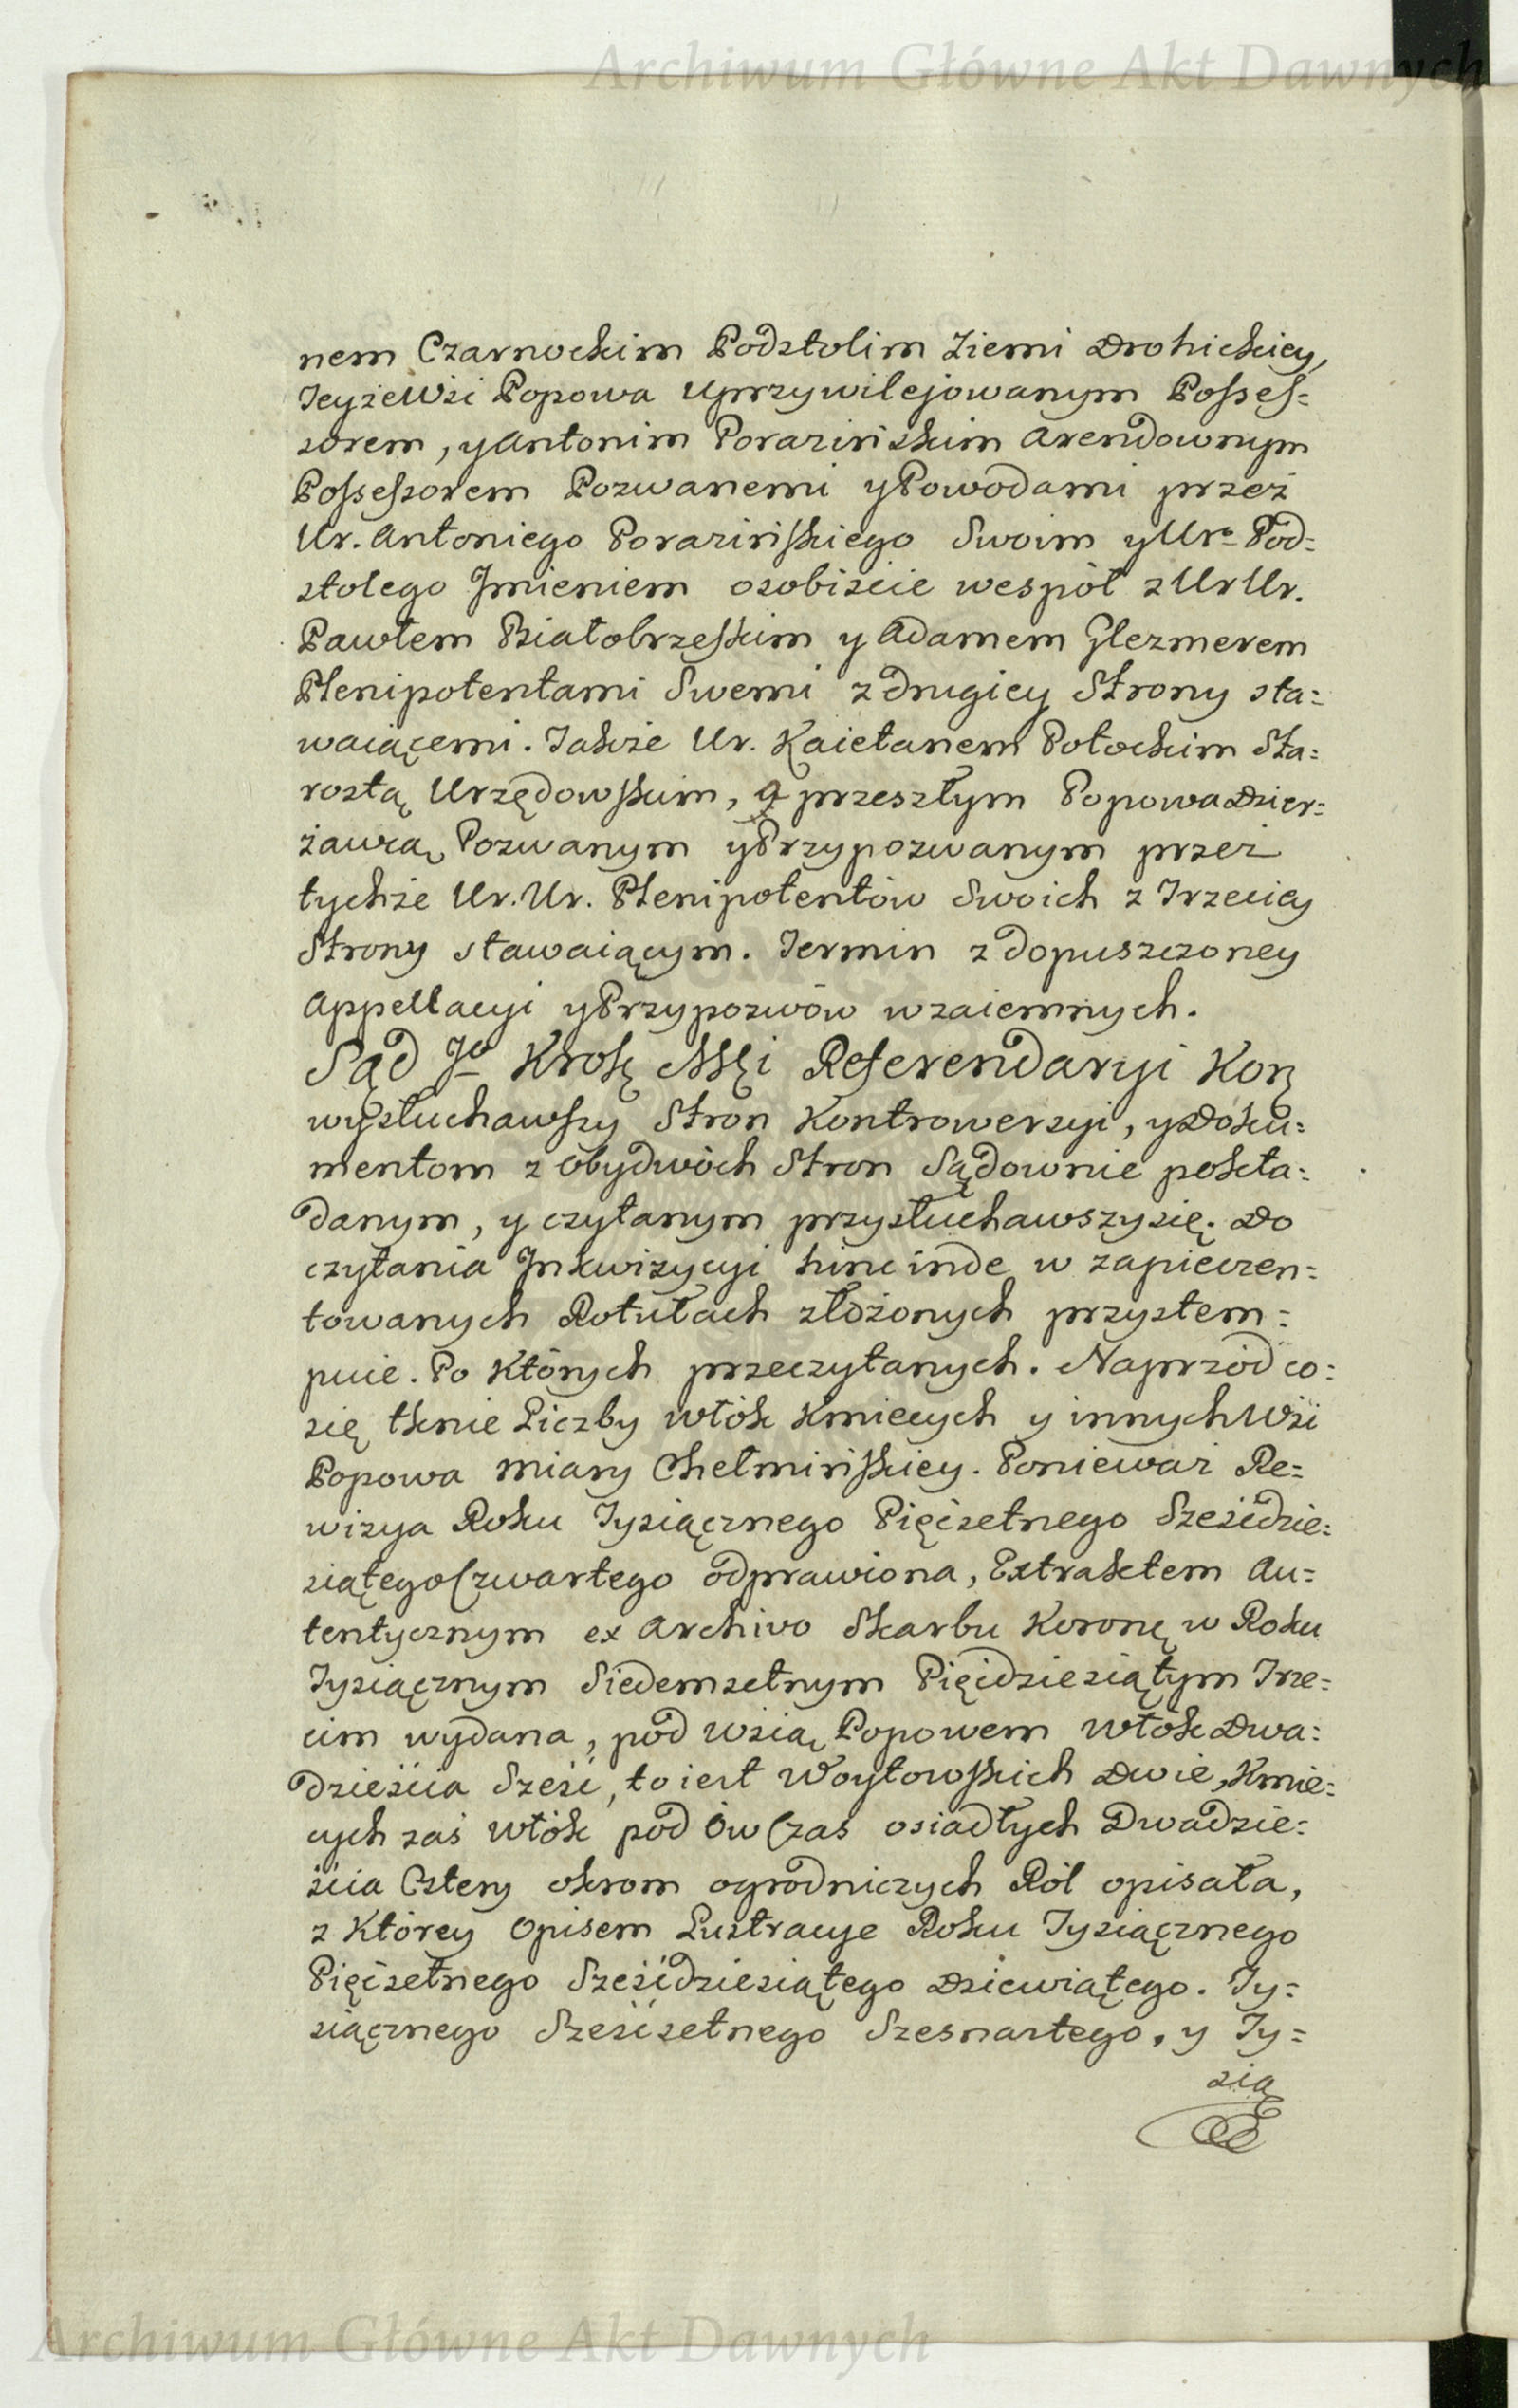 Archiwum Główne Akt Dawnych
nem Czarnockim Podstolim Ziemi Drohickiey,
Teyże Wsi Popowa Uprzywilejowanym Posses=
sorem, y Antonim Porazińskim Arendownym
Possessorem Pozwanemi y Powodami przez
Ur. Antoniego Porazińskiego Swoim y Urº Pod=
stolego Jmieniem osobiście wespół z Ur Ur.
Pawłem Białobrzęskim y Adamem Glezmerem
Plenipotentami Swemi z drugiey Strony sta=
waiącemi. Także Ur. Kaietanem Potockim Sta=
rostą Urzędowskim, a przeszłym Popowa Dzier=
żawcą Pozwanym y Przypozwanym przez
tychże Ur. Ur. Plenipotentów Swoich z Trzeciey
Strony stawaiącym. Termin z dopuszczoney
Appellacyi y Przypozwów wzaiemnych.
Sąd Jº Krolę Mśći Referendaryi Korę
wysłuchawszy Stron Kontrowersyi, y Doku=
mentom z obydwóch Stron Sądownie pokła=
danym, y czytanym przysłuchawszy się. Do
czytania Jnkwizycyi hinc inde w zapieczen=
towanych Rotułach złożonych przystem=
puie. Po Których przeczytanych. Naprzód co=
się tknie Liczby włók Kmiecych y innych Wsi
Popowa miary Chełmińskiey. Ponieważ Re=
wizya Roku Tysiącznego Pięćsetnego Sześćdzie=
siątego Czwartego odprawiona, Extraktem Au=
tentycznym ex Archivo Skarbu Koronę w Roku
Tysiącznym Siedemsetnym Pięćdziesiątym Trze=
cim wydana, pod Wsią Popowem włók Dwa=
dzieścia Sześć, to iest Woytowskich Dwie, Kmie=
cych zaś włók pod ów Czas osiadłych Dwadzie=
ścia Cztery okrom ogrodniczych Ról opisała,
z Którey Opisem Lustracye Roku Tysiącznego
Pięćsetnego Sześćdziesiątego Dziewiątego. Ty=
siącznego Sześćsetnego Szesnastego, y Ty=
sią
Archiwum Główne Akt Dawnych